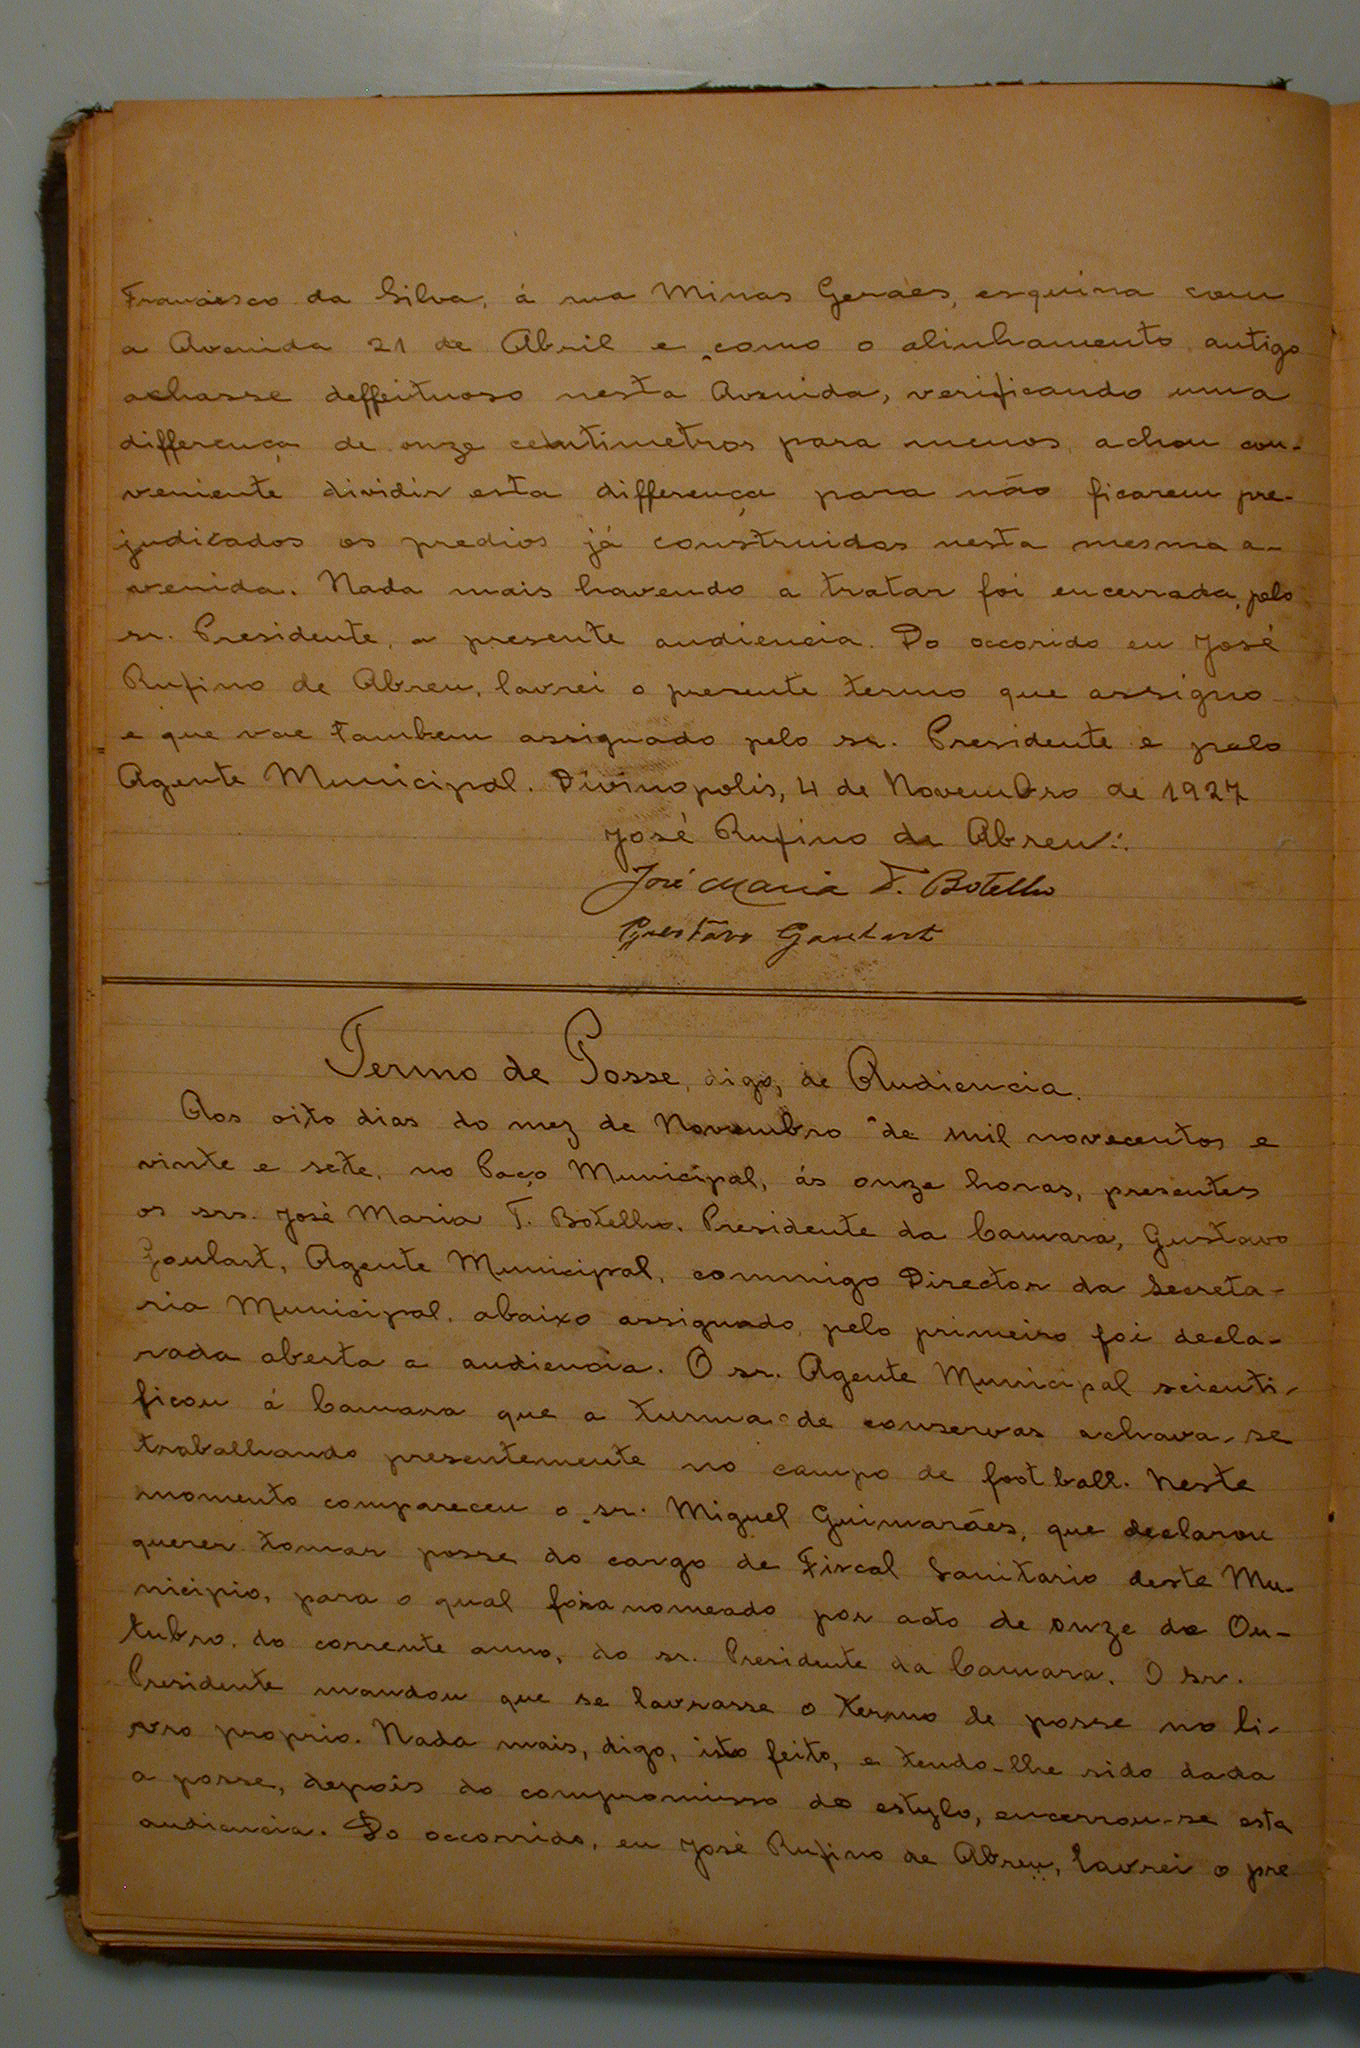 Francisco da Silva, á rua Minas Geraes, esquina com
a Avenida 21 de Abril e como o alinhamento antigo
achasse deffeituoso nesta Avenida, verificando uma
differença de onze centimetros para menos, achou con-
veniente dividir esta differença para não ficarem pre-
judicados os predios já construidos nesta mesma a-
venida. Nada mais havendo a tratar foi encerrada, pelo
sr. Presidente, a presente audiencia. Do occorido eu José
Rufino de Abreu, lavrei o presente termo que assigno
e que vae tambem assignado pelo sr. Presidente e pelo
Agente Municipal. Divinopolis, 4 de Novembro de 1927
José Rufino de Abreu
José Maria T. Botelho
Gustavo Goulart
Termo de Posse, digo, de Audiencia.
Aos oito dias do mez de Novembro de mil novecentos e
vinte e sete, no Paço Municipal, ás onze horas, presentes
os srs. José Maria T. Botelho, Presidente da Camara, Gustavo
Goulart, Agente Municipal, commigo Director da Secreta-
ria Municipal, abaixo assignado, pelo primeiro foi decla-
rada aberta a audiencia. O sr. Agente Municipal scienti-
ficou á Camara que a turma de conservas achava-se
trabalhando presentemente no campo de foot ball. Neste
momento compareceu o sr. Miguel Guimarães, que declarou
querer tomar posse do cargo de Fiscal Sanitario deste Mu-
nicipio, para o qual fora nomeado por acto de onze de Ou-
tubro, do corrente anno, do sr. Presidente da Camara. O sr.
Presidente mandou que se lavrasse o termo de posse no li-
vro proprio. Nada mais, digo, isto feito, e tendo-lhe sido dada
a posse, depois do compromisso do estylo, encerrou-se esta
audiencia. Do occorrido, eu José Rufino de Abreu, lavrei o pre